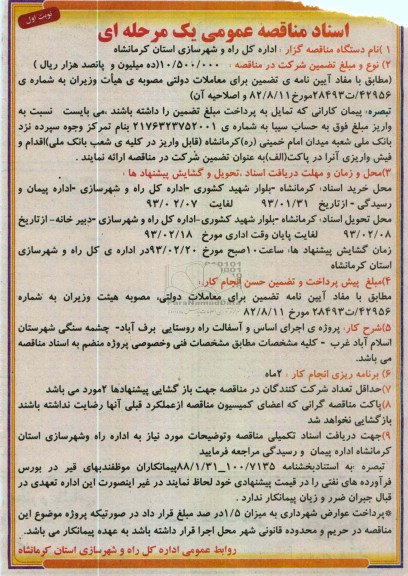 نوبت اول
اسناد مناقصه عمومی یک مرحله ای
۱)نام دستگاه مناقصه گزار : اداره کل راه و شهرسازی استان کرمانشاه
۲) نوع و مبلغ تضمین شرکت در مناقصه : ۱۰/۵۰۰/۰۰۰(ده میلیون و پانصد هزار ریال )
(مطابق با مفاد آیین نامه ی تضمین برای معاملات دولتی مصوبه ی هیأت وزیران به شماره ی
۴۲۹۵۶/ت۲۸۴۹۳مورخ۸۲/۸/۱۱ و اصلاحیه آن)
تبصره: پیمان کارانی که تمایل به پرداخت مبلغ تضمین را داشته باشند ،می بایست نسبت به
واریز مبلغ فوق به حساب سیبا به شماره ی ۲۱۷۶۳۲۳۷۵۲۰۰۱ بنام تمرکز وجوه سپرده نزد
بانک ملی شعبه میدان امام خمینی (ره)کرمانشاه (قابل واریز در کلیه ی شعب بانک ملی)اقدام و
فیش واریزی آنرا در پاکت(الف)به عنوان تضمین شرکت در مناقصه ارائه نمایند .
۳)محل و زمان و مهلت دریافت اسناد ،تحویل و گشایش پیشنهاد ها :
محل خرید اسناد: کرمانشاه -بلوار شهید کشوری -اداره کل راه و شهرسازی -اداره پیمان و
رسیدگی - ازتاریخ ۹۳/۰۱/۳۱ لغایت ۹۳/۰۲/۰۷
محل تحویل اسناد: کرمانشاه -بلوار شهید کشوری-اداره کل راه و شهرسازی -دبیر خانه- ازتاریخ
۹۳/۰۲/۰۸ لغایت پایان وقت اداری مورخ ۹۳/۰۲/۱۸
زمان گشایش پیشنهاد ها: ساعت۱۰صبح مورخ ۹۳/۰۲/۲۰در اداره ی کل راه و شهرسازی
استان کرمانشاه
۴)مبلغ پیش پرداخت و تضمین حسن انجام کار:
مطابق با مفاد آیین نامه تضمین برای معاملات دولتی، مصوبه هیئت وزیران به شماره
۴۲۹۵۶/ت۲۸۴۹۳ مورخ ۸۲/۸/۱۱
۵)شرح کار: پروژه ی اجرای اساس و آسفالت راه روستایی برف آباد- چشمه سنگی شهرستان
اسلام آباد غرب - کلیه مشخصات مطابق مشخصات فنی وخصوصی پروژه منضم به اسناد مناقصه
می باشد.
۶) برنامه ریزی انجام کار : ۲ماه
۷)حداقل تعداد شرکت کنندگان در مناقصه جهت باز گشایی پیشنهادها ۲مورد می باشد
۸)پاکت مناقصه گرانی که اعضای کمیسیون مناقصه ازعملکرد قبلی آنها رضایت نداشته باشند
بازگشایی نخواهد شد
۹)جهت دریافت اسناد تکمیلی مناقصه وتوضیحات مورد نیاز به اداره راه وشهرسازی استان
کرمانشاه اداره پیمان و رسیدگی مراجعه فرمایید
تبصره به استنادبخشنامه ۱۰۰/۷۱۳۵_۸۸/۱/۳۱پیمانکاران موظفندبهای قیر در بورس
فرآورده های نفتی را در قیمت پیشنهادی خود لحاظ نمایند در غیر اینصورت این اداره تعهدی در
قبال جبران ضرر و زیان پیمانکار ندارد .
*پرداخت عوارض شهرداری به میزان ۱/۵در صد مبلغ قرار داد در صورتیکه پروژه موضوع این
مناقصه در حریم و محدوده قانونی شهر محل اجرا قرار داشته باشد به عهده پیمانکار می باشد.
روابط عمومی اداره کل راه و شهرسازی استان کرمانشاه